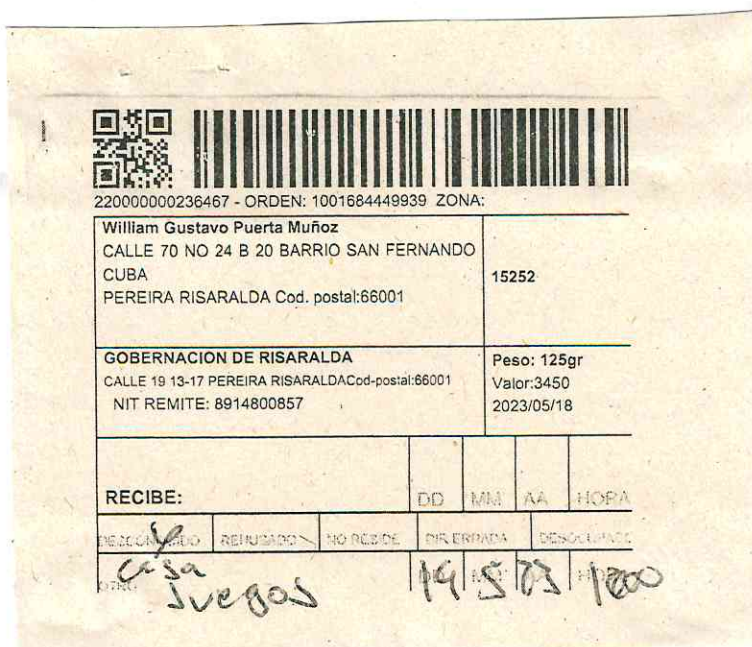 220000000236467 - ORDEN: 1001684449939 ZONA:
William Gustavo Puerta Muñoz
CALLE 70 NO 24 B 20 BARRIO SAN FERNANDO
CUBA
PEREIRA RISARALDA Cod. postal:66001
15252
GOBERNACION DE RISARALDA
CALLE 19 13-17 PEREIRA RISARALDACod-postal:66001
NIT REMITE: 8914800857
Peso: 125gr
Valor:3450
2023/05/18
RECIBE:
DD MM AA HORA
DESCONOCIDO REHUSADO NO RESIDE DIR. ERRADA DESOCUPADO
OTRO
casa
Juegos
19 5 23